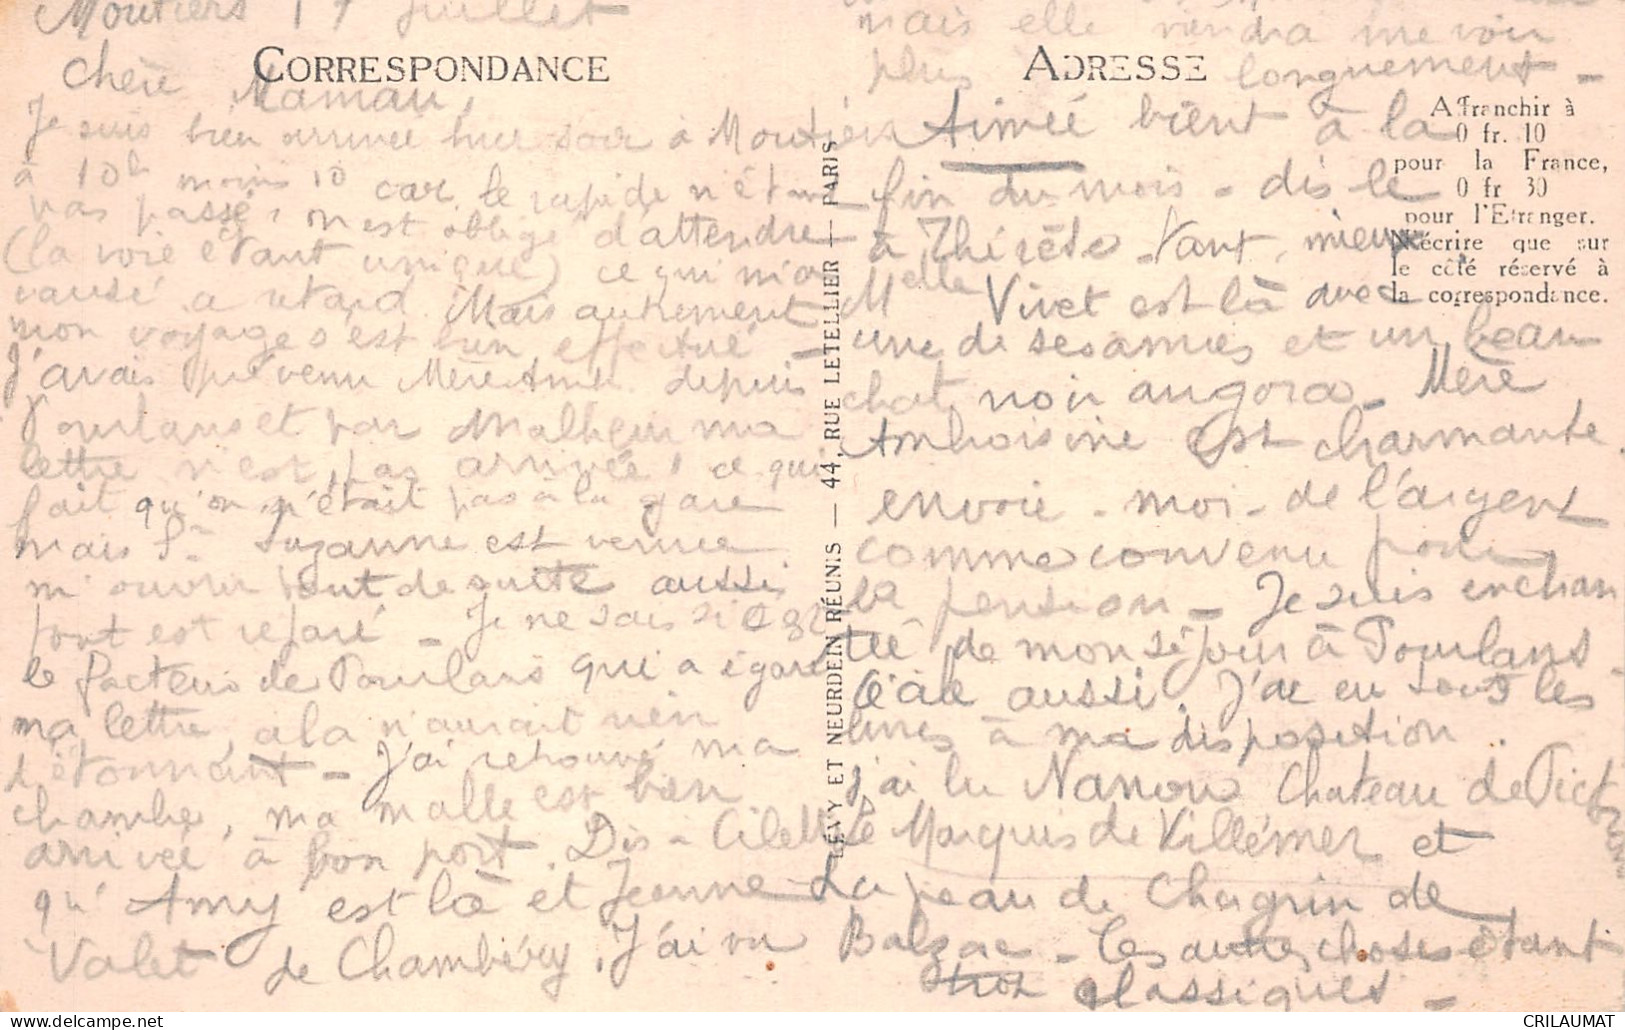 Moutiers 17 Juillet
CORRESPONDANCE
Chère Maman,
Je suis bien arrivée hier soir à Moutiers
à 10h moins 10 car le rapide n'étant
pas passé, on est obligé d'attendre
(la voie étant unique) ce qui m'a
causé a retard. Mais autrement
mon voyage s'est bien effectué -
J'avais prévenu Mère Amb. depuis
Pourlans et par Malheur ma
lettre n'est pas arrivée, ce qui
fait qu'on n'était pas à la gare
mais Sr Suzanne est venue
m'ouvrir tout de suite aussi
tout est réparé - Je ne sais si c'est
le facteur de Pourlans qui a égaré
ma lettre, cela n'aurait rien
d'étonnant - J'ai retrouvé ma
chambre, ma malle est bien
arrivée à bon port. Dis à Cilette
qu'Amy est là et Jeanne
Valet de Chambéry, J'ai vu
LÉVY ET NEURDEIN RÉUNIS — 44, RUE LETELLIER — PARIS
mais elle viendra me voir
ADRESSE
plus longuement -
Affranchir à
0 fr. 10
pour la France,
0 fr 30
pour l'Etranger.
N'écrire que sur
le côté réservé à
la correspondance.
Aimée vient à la
fin du mois - dis le
à Thérèse - tant mieux
Melle Vivet est là avec
une de ses amies et un beau
chat noir angora - Mère
Ambroisine est charmante
envoie - moi - de l'argent
comme convenu pour
la pension - Je suis enchan
tée de mon séjour à Pourlans -
Cécile aussi. J'ai eu tous les
livres à ma disposition.
j'ai lu Nanon Chateau de Pictordu
le Marquis de Villemer et
La peau de Chagrin de
Balzac - les autres choses étant
trop classiques -
CRILAUMAT